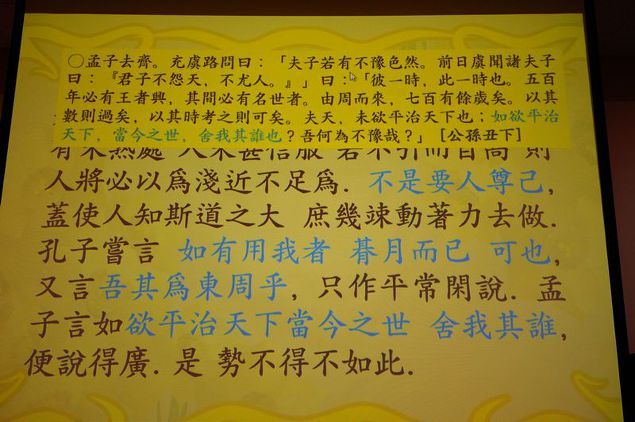 ○孟子去齊。充虞路問曰：「夫子若有不豫色然。前日虞聞諸夫子
曰：『君子不怨天，不尤人。』」曰：「彼一時，此一時也。五百
年必有王者興，其間必有名世者。由周而來，七百有餘歲矣。以其
數則過矣，以其時考之則可矣。夫天，未欲平治天下也；如欲平治
天下，當今之世，舍我其誰也？吾何為不豫哉？」［公孫丑下］
有未熟處 人未甚信服 若不引而自高 則
人將必以爲淺近不足爲. 不是要人尊己,
蓋使人知斯道之大 庶幾竦動著力去做.
孔子嘗言 如有用我者 朞月而已 可也,
又言吾其爲東周乎, 只作平常閑說. 孟
子言如欲平治天下當今之世 舍我其誰,
便說得廣. 是 勢不得不如此.